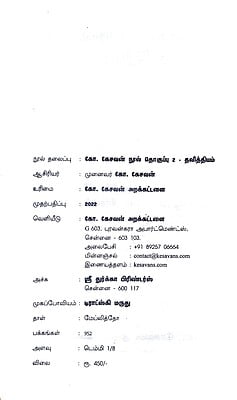 நூல் தலைப்பு : கோ. கேசவன் நூல் தொகுப்பு 2 - தலித்தியம்
ஆசிரியர் : முனைவர் கோ. கேசவன்
உரிமை : கோ. கேசவன் அறக்கட்டளை
முதற்பதிப்பு : 2022
வெளியீடு : கோ. கேசவன் அறக்கட்டளை
G 603, புரவன்கரா அபார்ட்மெண்ட்ஸ்,
சென்னை - 603 103.
அலைபேசி : +91 89257 06664
மின்னஞ்சல் : contact@kesavans.com
இணையத்தளம் : kesavans.com
அச்சு : ஸ்ரீ துர்க்கா பிரிண்டர்ஸ்
சென்னை - 600 117
முகப்போவியம் : டிராட்ஸ்கி மருது
தாள் : மேப்லித்தோ
பக்கங்கள் : 952
அளவு : டெம்மி 1/8
விலை : ரூ. 450/-